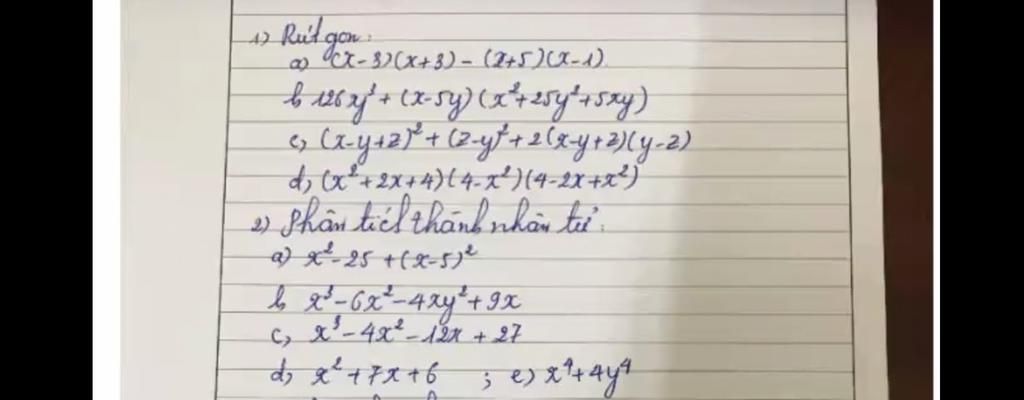 1) Rút gọn:
a) (x-3)(x+3) - (x+5)(x-1)
b, 126xy³ + (x-5y)(x²+25y²+5xy)
c, (x-y+z)² + (z-y)² + 2(x-y+z)(y-z)
d, (x²+2x+4)(4-x²)(4-2x+x²)
2) Phân tích thành nhân tử:
a) x²-25 + (x-5)²
b, x³-6x²-4xy²+9x
c, x³-4x²-12x+27
d, x²+7x+6 ; e) x⁴+4y⁴